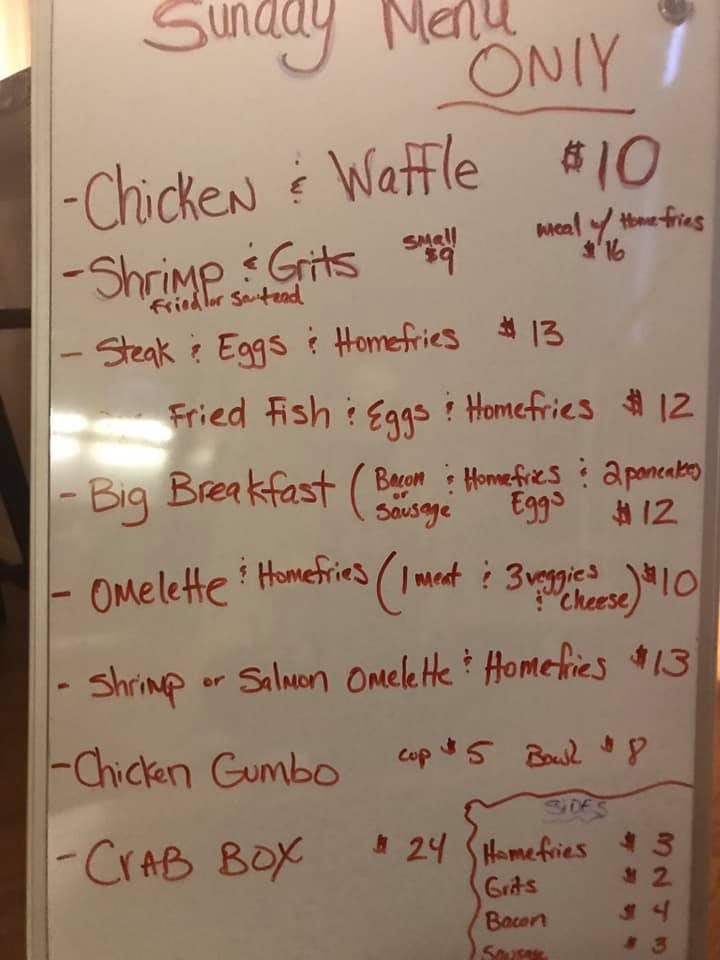 Sunday Menu
ONLY
- Chicken & Waffle $10
- Shrimp & Grits small $9 meal w/ Homefries $16
Fried or Sauteed
- Steak & Eggs & Homefries $13
Fried Fish & Eggs & Homefries $12
- Big Breakfast (Bacon or Sausage & Homefries & 2 pancakes
Eggs $12
- Omelette & Homefries (1 meat & 3 veggies & cheese) $10
- Shrimp or Salmon Omelette & Homefries $13
- Chicken Gumbo cup $5 Bowl $8
- CRAB BOX $24
SiDES
Homefries $3
Grits $2
Bacon $4
Sausage $3